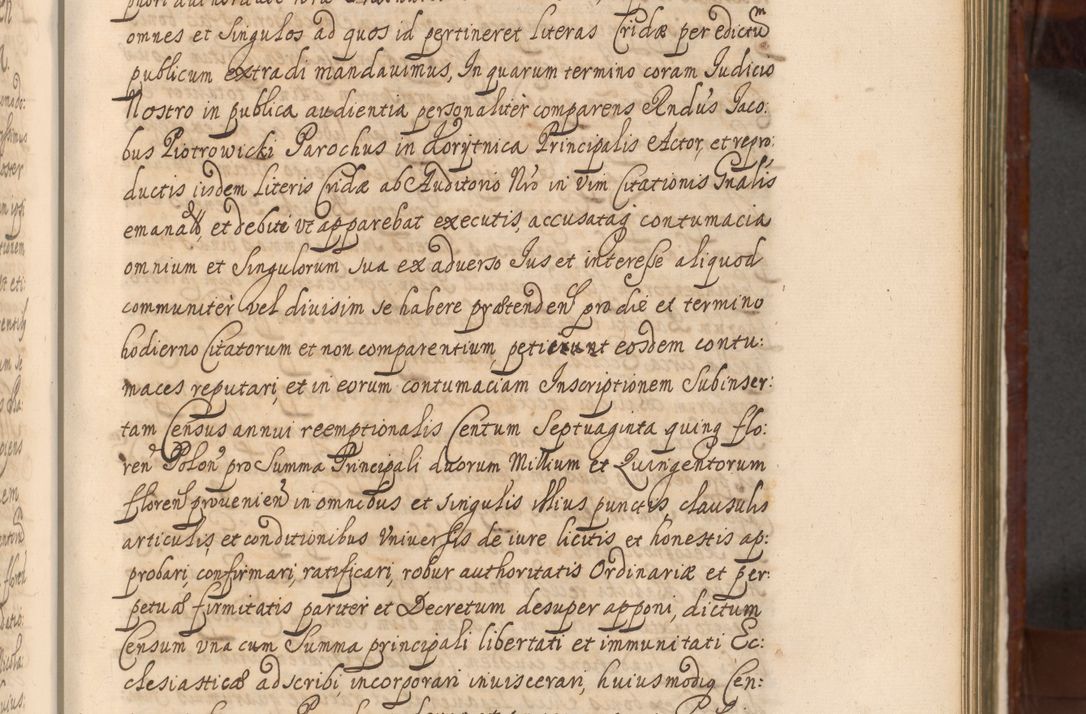 omnes et Singulos ad quos id pertineret literas Cridæ per edictũ
publicum extradi mandavimus, In quarum termino coram Judicio
Nostro in publica audientia personalitèr comparens Rndus Jaco:
bus Piotrowicki Parochus in dorytnica Principalis Actor, et repro:
ductis iisdem Literis Cridæ ab Auditorio Nro in vim Citationis Gnalis
emanatis, et debitè vt apparebat executis, accusataq contumacia
omnium et Singulorum sua ex adverso Jus et interesse aliquod
communitèr vel divisim se habere prætenden pro die et termino
hodierno Citatorum et non comparentium, petiit eosdem contu:
maces reputari, et in eorum contumaciam Inscriptionem Subinser:
tam Census annui reemptionalis Centum Septuaginta quinq flo:
ren Polon pro Summa Principali duorum Millium et Quingentorum
floren provenien in omnibus et singulis illius punctis, clausulis
articulis, et conditionibus Universis de iure licitis et honestis ap:
probari, confirmari, ratificari, robur authoritatis Ordinariæ et per:
petuæ firmitatis pariter et Decretum desuper apponi, dictum
Censum vna cum Summa principali libertati et immunitati Ec:
clesiasticæ adscribi, incorporari inviscerari, huiusmodiq Cen: